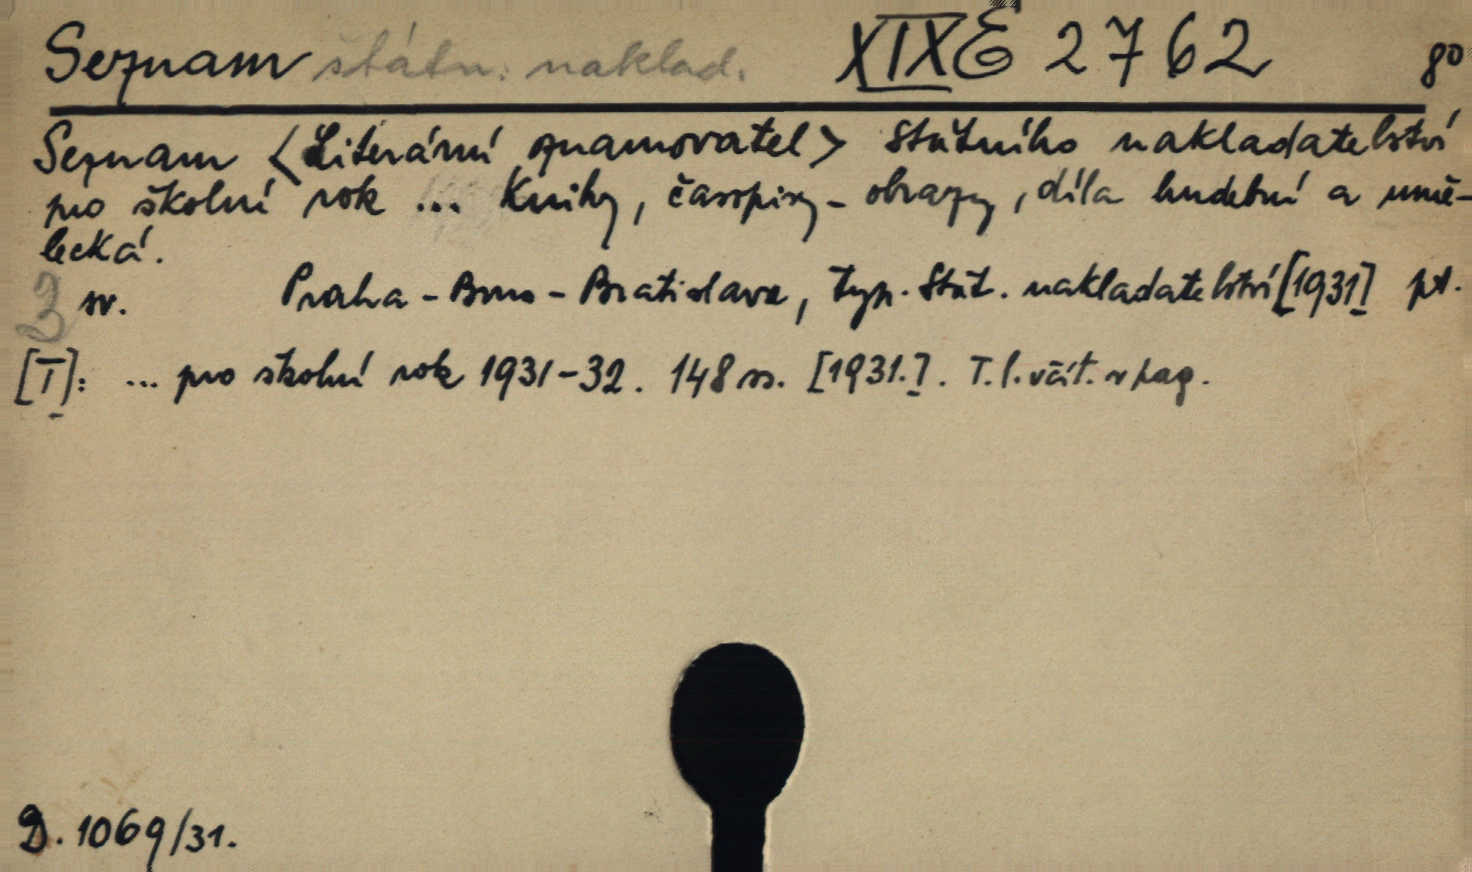 Seznam státn. naklad. XIX E 2762 8°
Seznam <Literární oznamovatel> Státního nakladatelství
pro školní rok ... Knihy, časopisy - obrazy, díla hudební a umě-
lecká.
3 sv. Praha - Brno - Bratislava, typ. Stát. nakladatelství [1931] pt.
[I]: ... pro školní rok 1931-32. 148 ss. [1931.]. T. l. včít. v pag.
D. 1069/31.